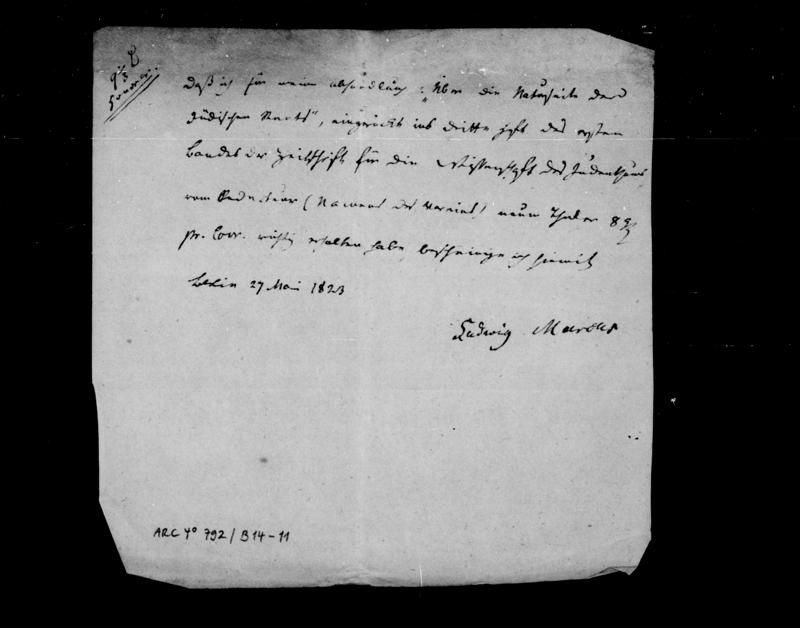 9 1/3
Daß ich für meine Abhandlung: „Über die Naturseite des
Jüdischen Staats", eingerückt ins dritte Heft des ersten
Bandes der Zeitschrift für die Wissenschaft des Judenthums,
vom Redacteur (Namens des Vereins) neun Thaler 8
pr. Cour. richtig erhalten habe, bescheinige ich hiemit
Berlin 27 Mai 1823
Ludwig Marcus
ARC 4° 792/B14-11